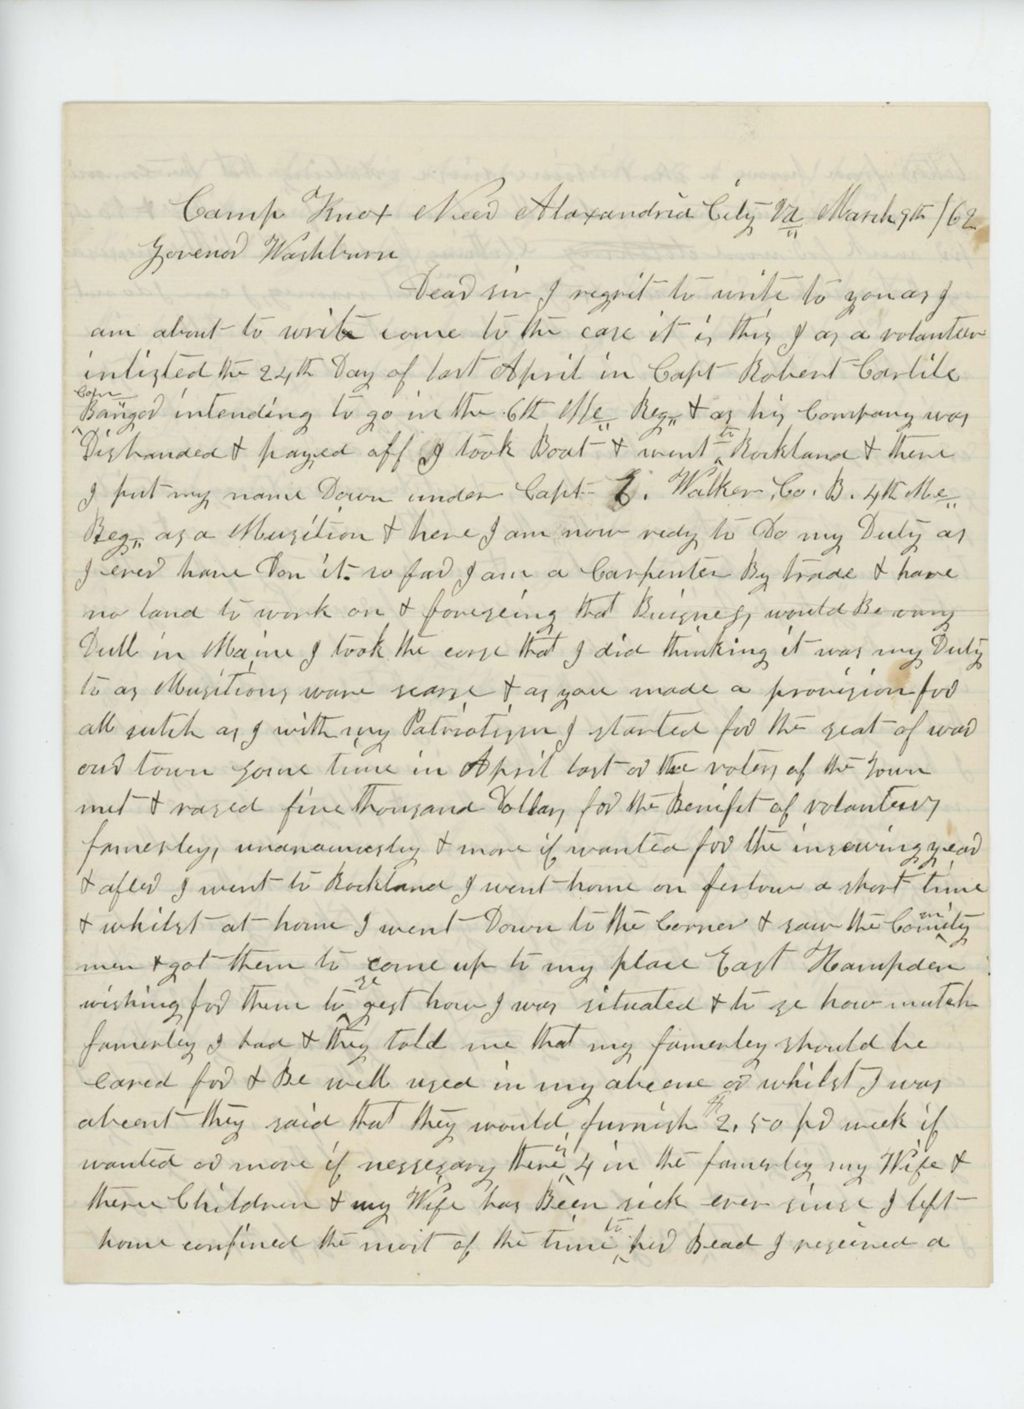 Camp Knox Near Alaxandria City Va March 9th /62
Govenor Washburn
Dear sir I regrit to write to you as I
am about to write come to the case it is this I as a volanteer
inlisted the 24th Day of last April in Capt Robert Carlile
Comp
Bangor intending to go in the 6th Me Reg & as his Company was
Disbanded & payed off I took Boat & went to Rockland & there
I put my name Down under Capt E. Walker, Co. B. 4th Me
Reg as a Musition & here I am now redy to Do my Duty as
I ever have Don it. so far I am a Carpenter By trade & have
no land to work on & foreseing that Buisness would Be vary
Dull in Maine I took the corse that I did thinking it was my Duty
to as Musitions ware scarse & as you made a provision for
all sutch as I with my Patriotism I started for the seat of war
our town some time in April last or the voters of the Town
met & rased five thousand Dollars for the Benifit of volanteers
famerleys unanamosley & more if wanted for the insewing year
& after I went to Rockland I went home on ferlow a short time
& whilst at home I went Down to the Corner & saw the Comity
men & got them to come up to my place East Hampden
wishing for them to se gest how I was situated & to se how mutch
famerley I had & they told me that my famerley should be
cared for & Be well used in my absence or whilst I was
absent they said that they would furnish $2.50 pr week if
wanted or more if nessesary there is 4 in the famerley my Wife &
three Children & my Wife has Been sick ever sinse I left
home confined the most of the time to her Bead I reseived a